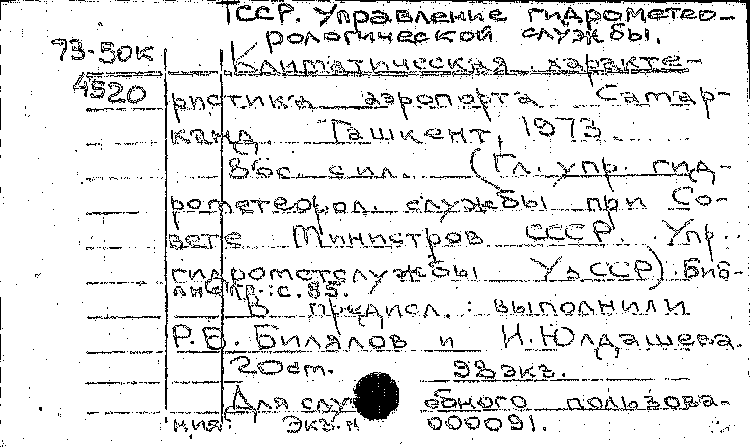 ТССР. Управление гидрометео-
рологической службы.
73-50к
Климатическая характе-
4520
ристика аэропорта Самар-
канд. Ташкент, 1973.
86с. с ил. (Гл. упр. гид-
рометеорол. службы при Со-
вете Министров СССР. Упр.
гидрометслужбы УзССР). Биб-
лиогр.: с. 85.
В предисл.: выполнили
Р.В. Билялов и И. Юлдашева.
20 см. 38 экз.
Для служебного пользова-
ния. Экз. N 000091.